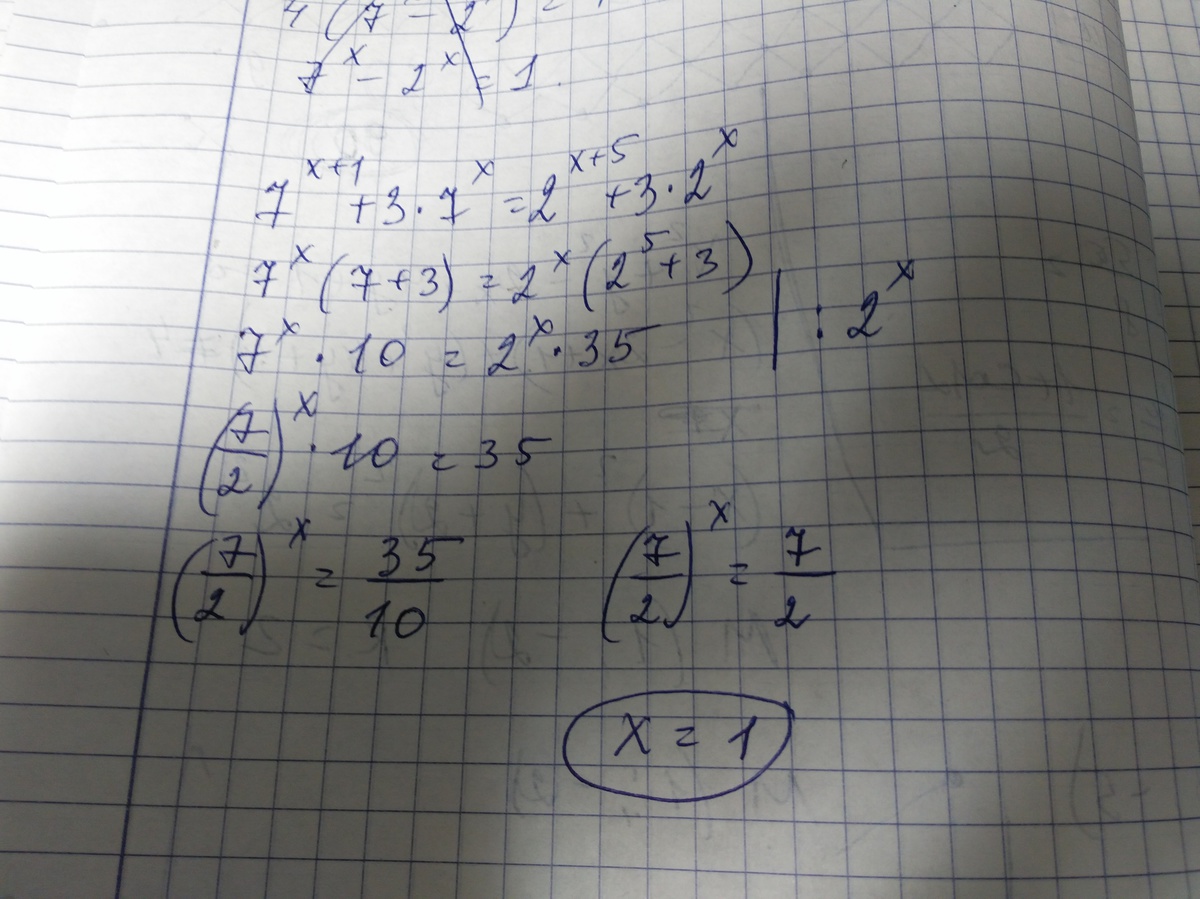 4(7 - 2) =
7^x - 2^x = 1.
7^{x+1} + 3·7^x = 2^{x+5} + 3·2^x
7^x (7+3) = 2^x (2^5 + 3)
7^x · 10 = 2^x · 35 | : 2^x
(7/2)^x · 10 = 35
(7/2)^x = 35/10 (7/2)^x = 7/2
x = 1